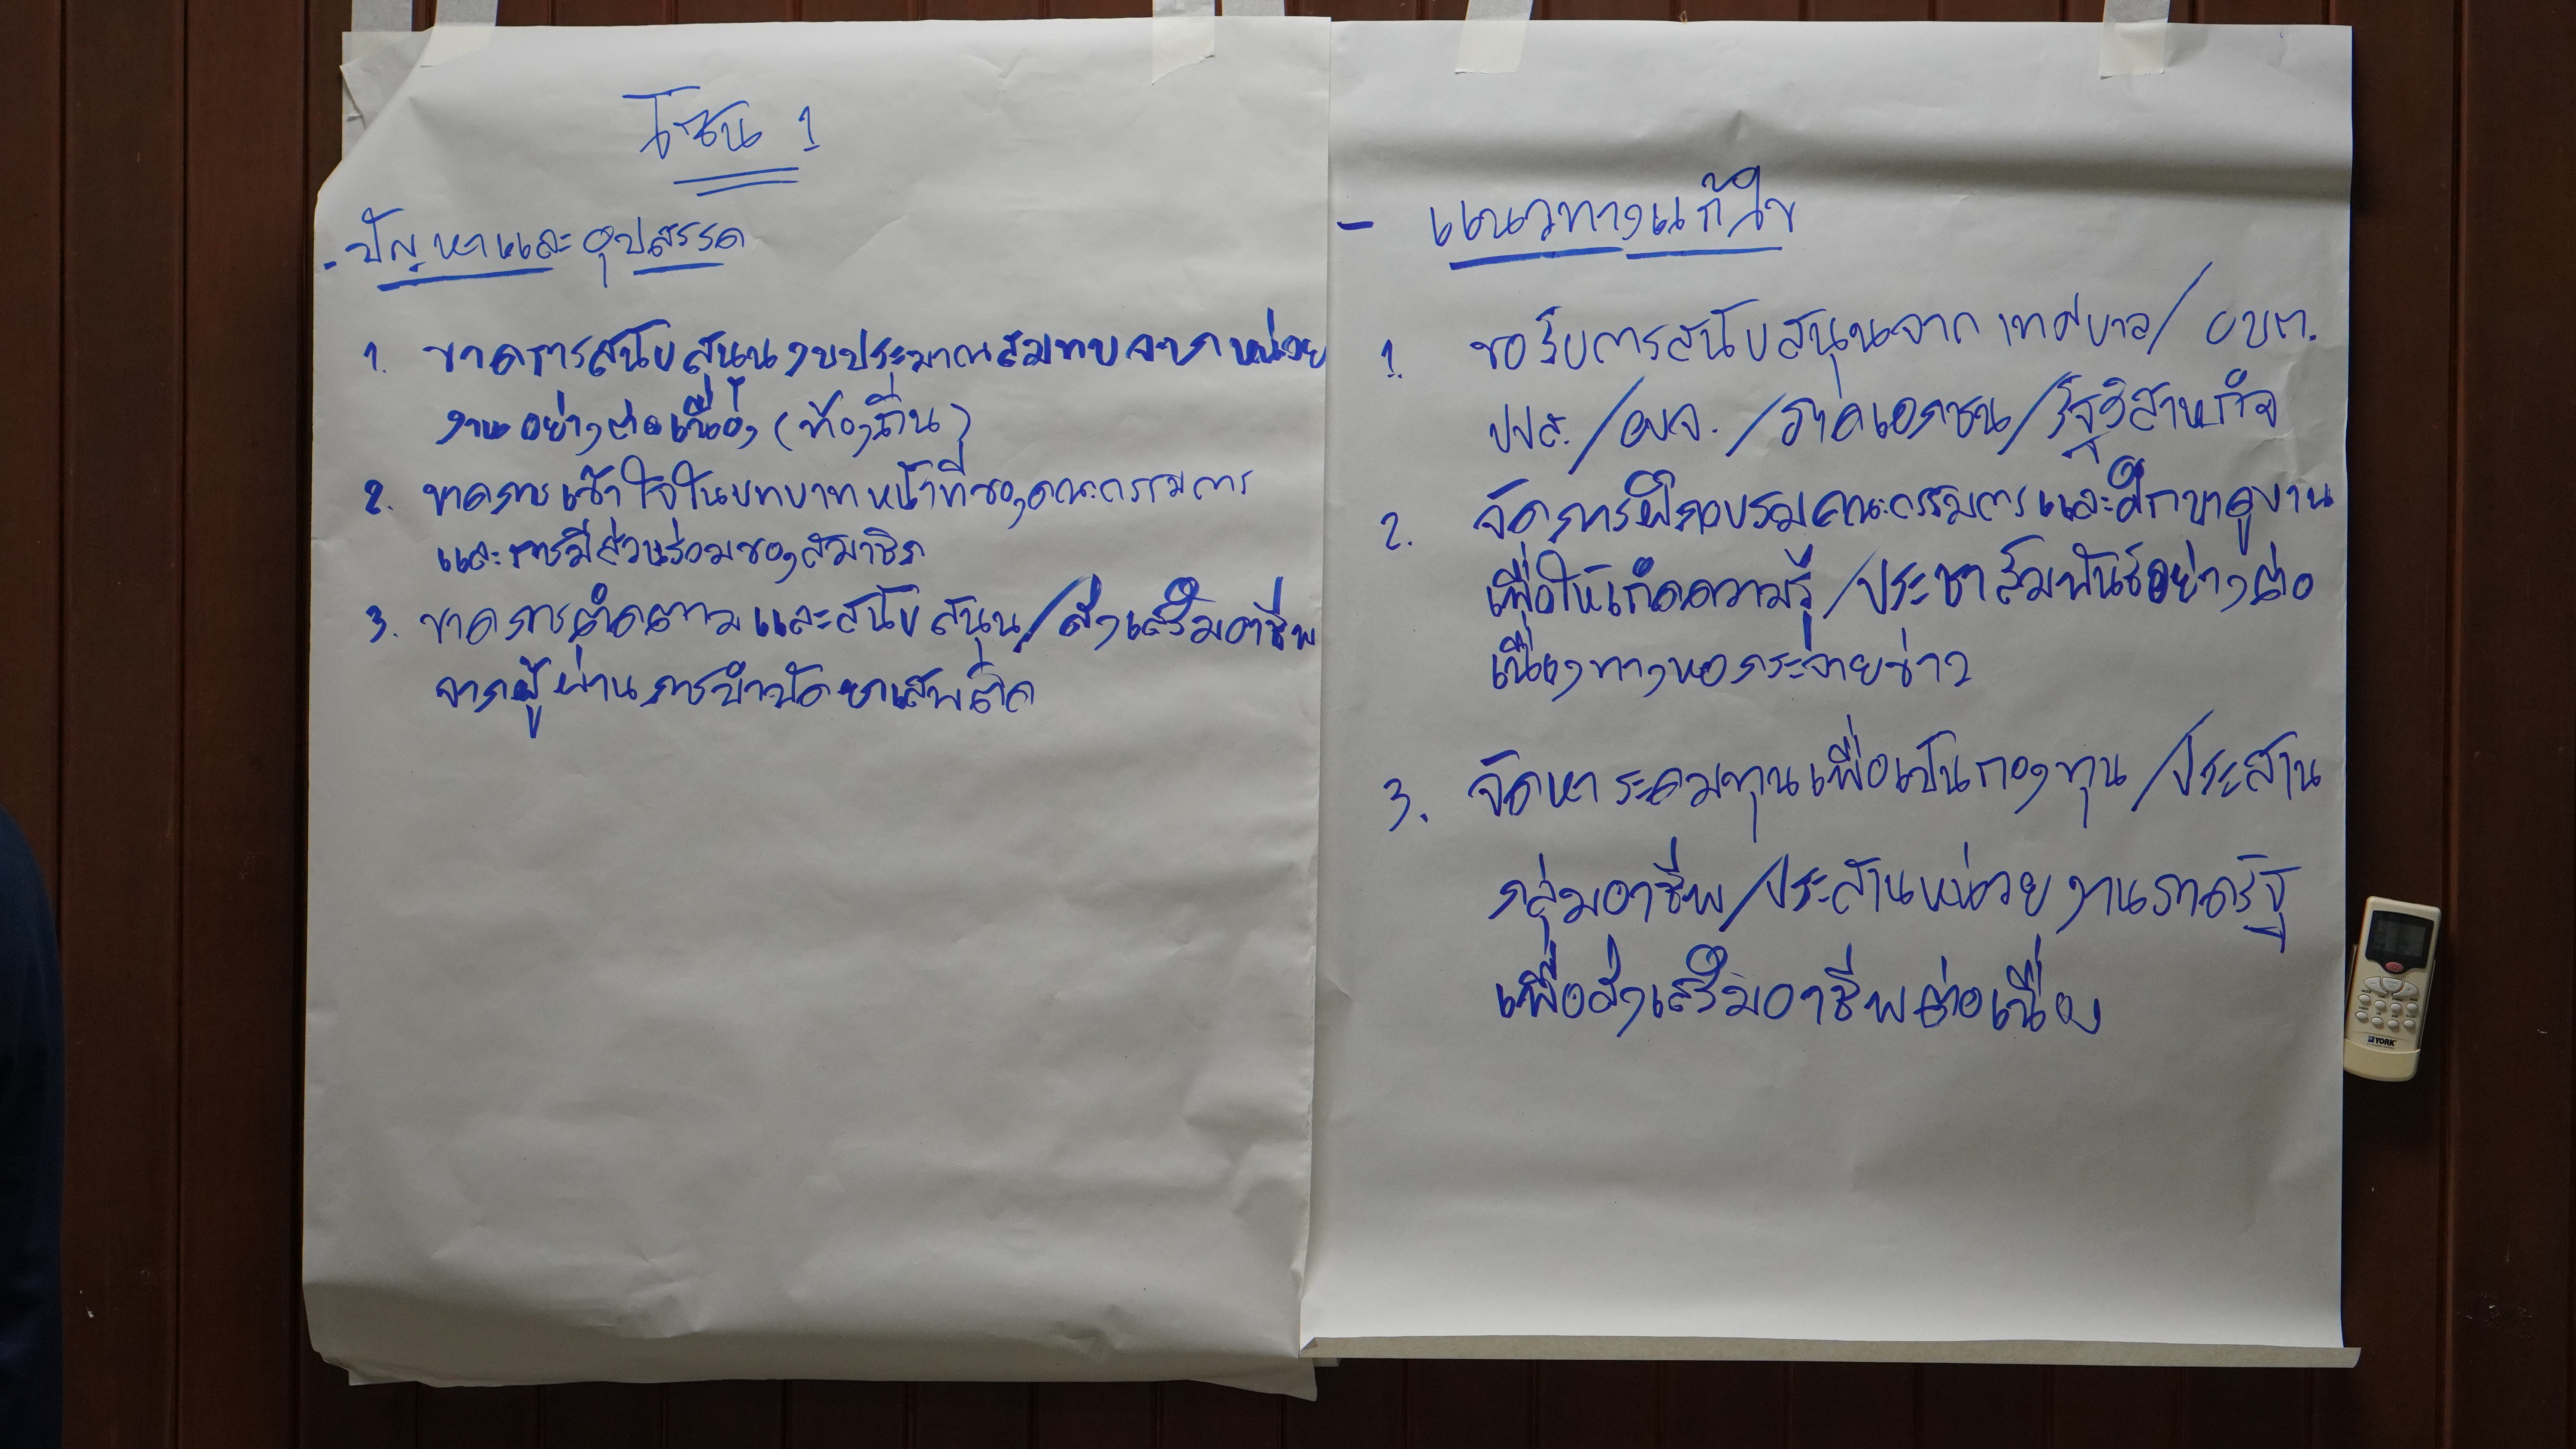 โซน 1
- ปัญหาและอุปสรรค
1. ขาดการสนับสนุนงบประมาณสมทบจากหน่วย
งานอย่างต่อเนื่อง (ท้องถิ่น)
2. ขาดการเข้าใจในบทบาทหน้าที่ของคณะกรรมการ
และการมีส่วนร่วมของสมาชิก
3. ขาดการติดตามและสนับสนุน/ส่งเสริมอาชีพ
จากผู้ผ่านการบำบัดยาเสพติด
- แนวทางแก้ไข
1. ขอรับการสนับสนุนจากเทศบาล/อบต.
ปปส./อบจ./ภาคเอกชน/รัฐวิสาหกิจ
2. จัดการฝึกอบรมคณะกรรมการและศึกษาดูงาน
เพื่อให้เกิดความรู้/ประชาสัมพันธ์อย่างต่อ
เนื่องทางหอกระจายข่าว
3. จัดหาระดมทุนเพื่อเป็นกองทุน/ประสาน
กลุ่มอาชีพ/ประสานหน่วยงานภาครัฐ
เพื่อส่งเสริมอาชีพต่อเนื่อง
YORK